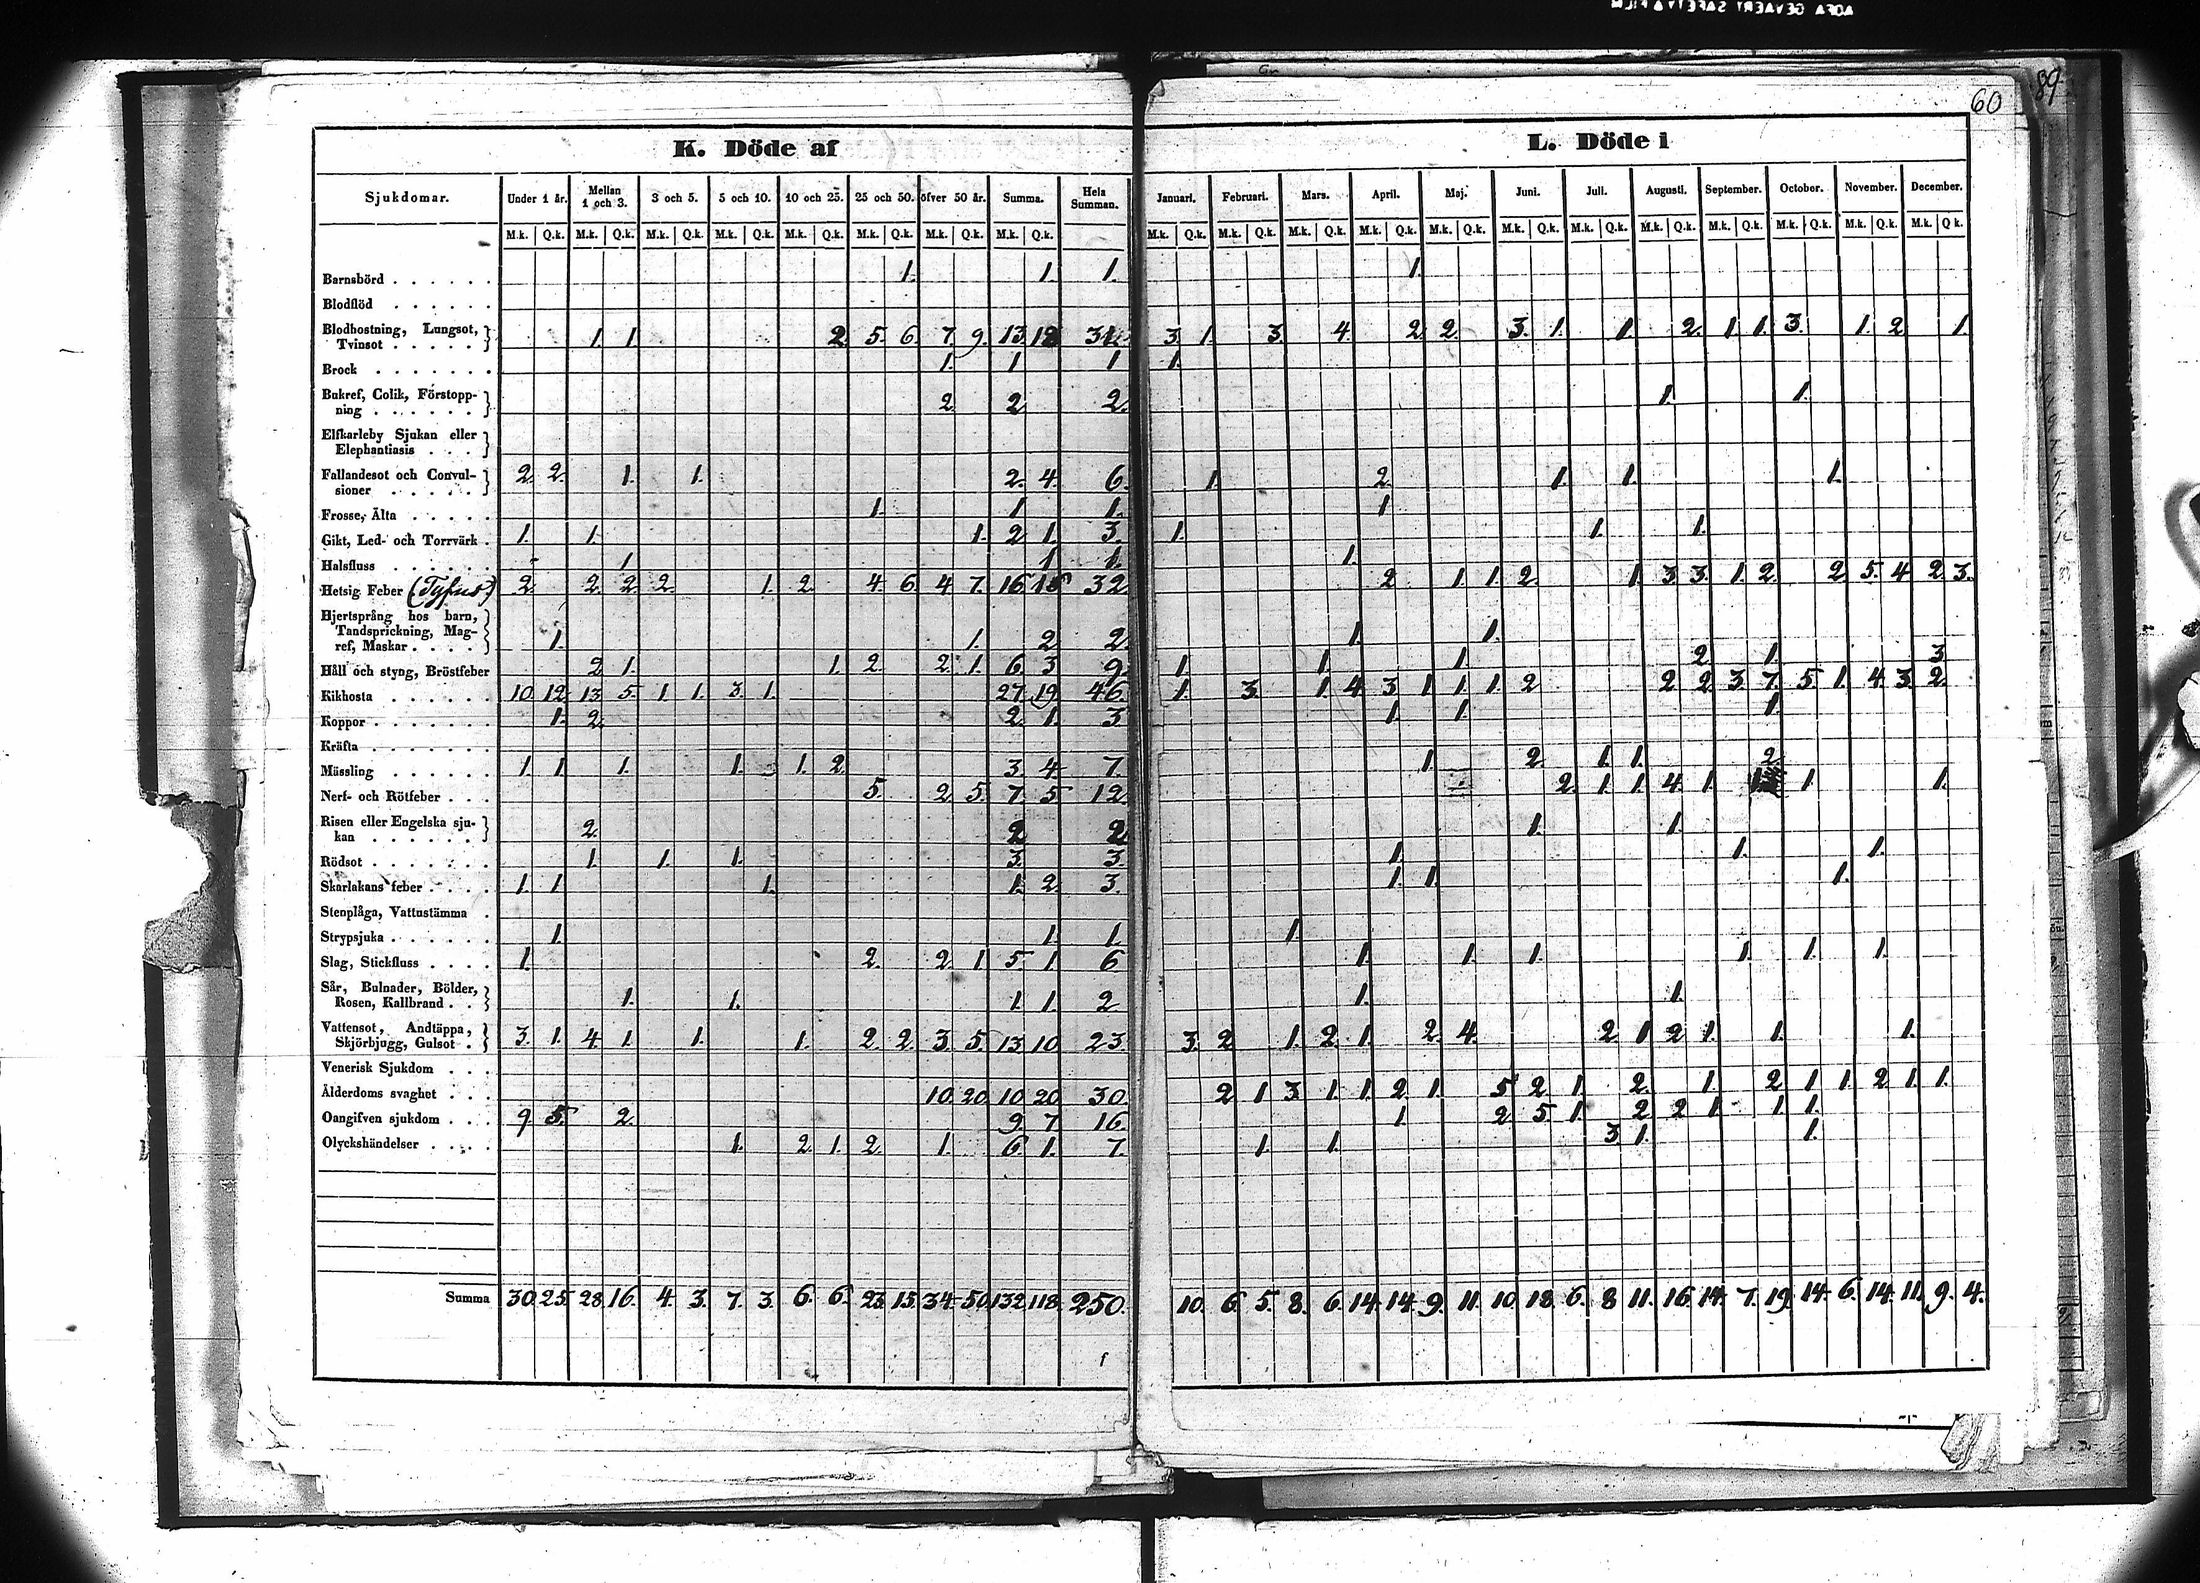 AGFA GEVAERT SAFETY FILM
60 89
K. Döde af L. Döde i
Sjukdomar. Under 1 år. Mellan 1 och 3. 3 och 5. 5 och 10. 10 och 25. 25 och 50. öfver 50 år. Summa. Hela Summan. Januari. Februari. Mars. April. Maj. Juni. Juli. Augusti. September. October. November. December.
M.k. Q.k. M.k. Q.k. M.k. Q.k. M.k. Q.k. M.k. Q.k. M.k. Q.k. M.k. Q.k. M.k. Q.k. M.k. Q.k. M.k. Q.k. M.k. Q.k. M.k. Q.k. M.k. Q.k. M.k. Q.k. M.k. Q.k. M.k. Q.k. M.k. Q.k. M.k. Q.k. M.k. Q.k. M.k. Q.k.
Barnsbörd 1. 1. 1. 1.
Blodflöd
Blodhostning, Lungsot,
Tvinsot 1. 1. 2. 5. 6. 7. 9. 13. 3. 1. 3. 4. 2. 2. 3. 1. 1. 2. 1. 1. 3. 1. 2. 1.
Brock 1. 1 1 1.
Bukref, Colik, Förstopp-
ning 2. 2 2. 1. 1.
Elfkarleby Sjukan eller
Elephantiasis
Fallandesot och Convul-
sioner 2. 2. 1. 1. 2. 4. 6. 1. 2. 1. 1. 1.
Frosse, Älta 1. 1 1. 1
Gikt, Led- och Torrvärk 1. 1. 1. 2 1. 3. 1. 1. 1.
Halsfluss 1 1 1. 1.
Hetsig Feber (Tyfus) 2. 2. 2. 2. 1. 2. 4. 6. 4 7. 16. 16 32. 2 1. 1. 2. 1. 3. 3. 1. 2. 2. 5. 4 2. 3.
Hjertsprång hos barn,
Tandsprickning, Mag-
ref, Maskar 1. 1. 2 2. 1. 1.
Håll och styng, Bröstfeber 2 1. 1. 2. 2. 1. 6 3 9. 1. 1. 1. 2. 1. 3.
Kikhosta 10. 12. 13 5. 1. 1. 3. 1. 27 19 46 1. 3. 1. 4. 3. 1. 1. 1. 2 2 2. 3. 7. 5. 1. 4. 3. 2.
Koppor 1. 2. 2. 1. 3 1. 1. 1.
Kräfta
Mässling 1. 1. 1. 1. 1. 2. 3. 4 7. 1. 2. 1. 1. 2.
Nerf- och Rötfeber 5. 2 5. 7. 5 12. 2. 1. 1. 4. 1. 1. 1.
Risen eller Engelska sju-
kan 2. 2 2 1. 1.
Rödsot 1. 1. 1. 3. 3. 1. 1. 1.
Skarlakans feber 1. 1 1. 1. 2. 3. 1. 1. 1.
Stenplåga, Vattustämma
Strypsjuka 1. 1. 1. 1.
Slag, Stickfluss 1. 2. 2. 1 5. 1 6 1. 1. 1. 1. 1. 1.
Sår, Bulnader, Bölder,
Rosen, Kallbrand 1. 1. 1. 1. 2 1. 1.
Vattensot, Andtäppa,
Skjörbjugg, Gulsot 3. 1. 4. 1. 1. 1. 2. 2. 3. 5. 13. 10 23. 3. 2 1. 2. 1. 2. 4. 2 1. 2 1. 1. 1.
Venerisk Sjukdom
Ålderdoms svaghet 10. 20. 10 20 30. 2 1 3. 1. 1. 2. 1. 5 2 1. 2. 1. 2 1. 1. 2 1. 1.
Oangifven sjukdom 9. 5. 2. 9. 7. 16. 1. 2 5. 1. 2 2 1. 1. 1.
Olyckshändelser 1. 2. 1. 2. 1. 6 1. 7. 1. 1. 3. 1. 1.
Summa 30. 25. 28. 16. 4. 3. 7. 3. 6. 6. 23. 15. 34. 50. 132. 118. 250. 10. 6. 5. 8. 6. 14. 14. 9. 11. 10. 18. 6. 8 11. 16. 14. 7. 19. 14. 6. 14. 11. 9. 4.